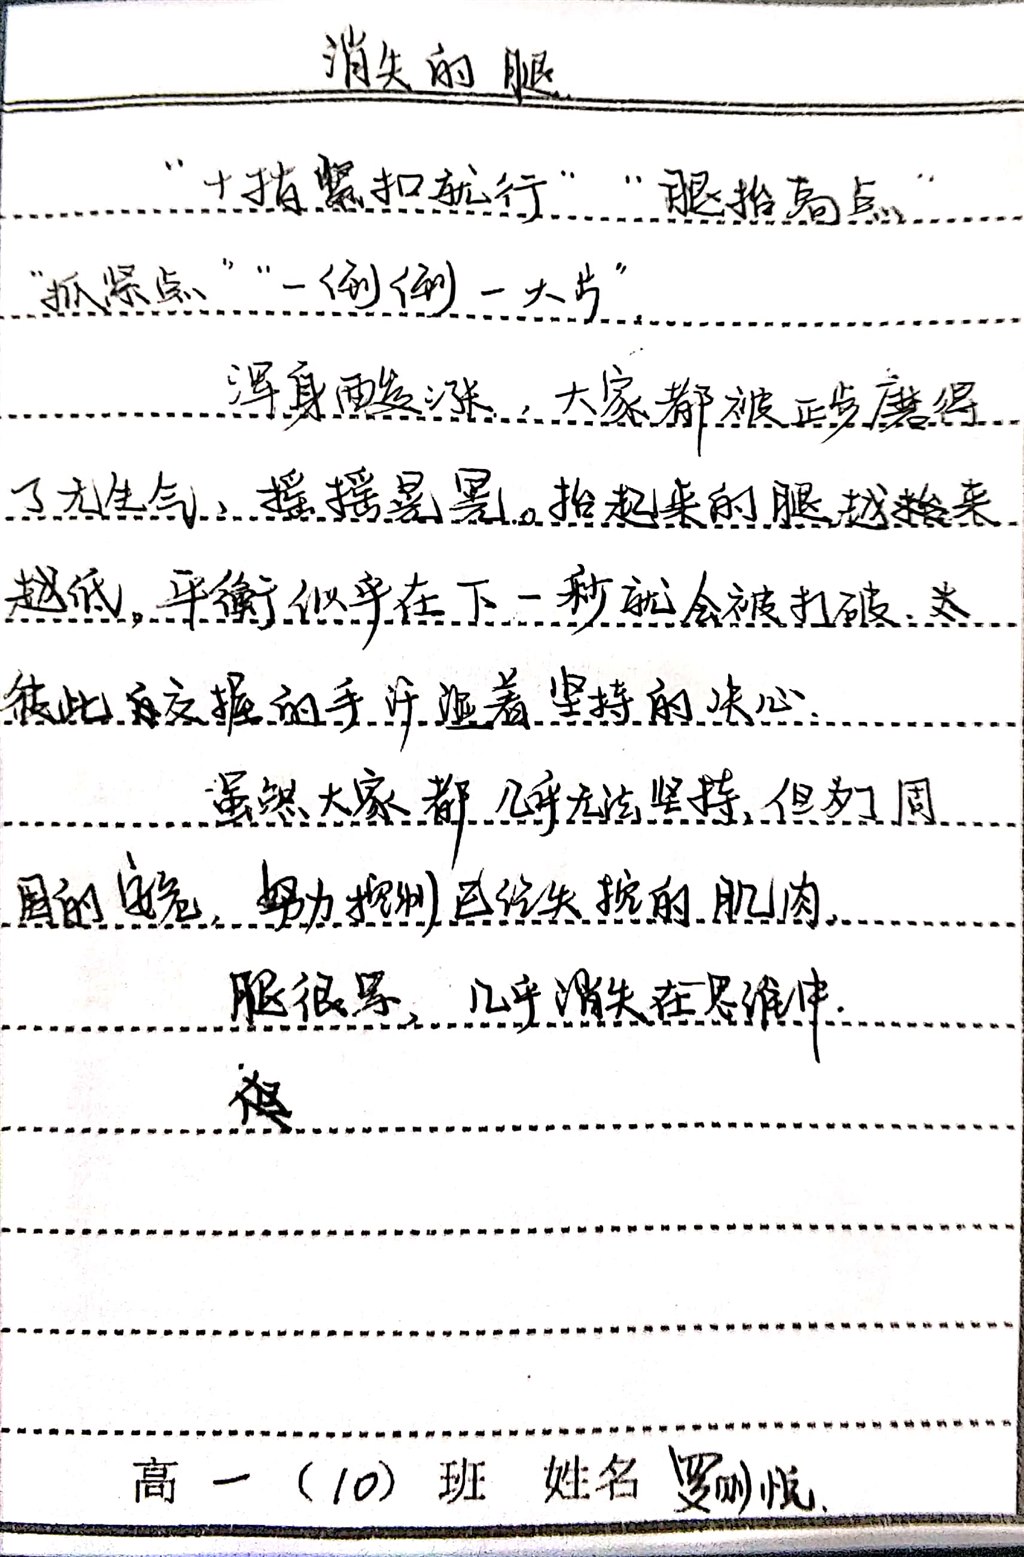 消失的腿
“十指紧扣就行”“腿抬高点”
“抓紧点”“一倒倒一大片”.
浑身酸涨,大家都被正步磨得
了无生气,摇摇晃晃。抬起来的腿越来
越低。平衡似乎在下一秒就会被打破.
彼此交握的手汗湿着坚持的决心.
虽然大家都几乎无法坚持,但为了周
围的安危,努力控制已经失控的肌肉.
腿很累,几乎消失在思维中.
高一(10)班 姓名 罗明悦.